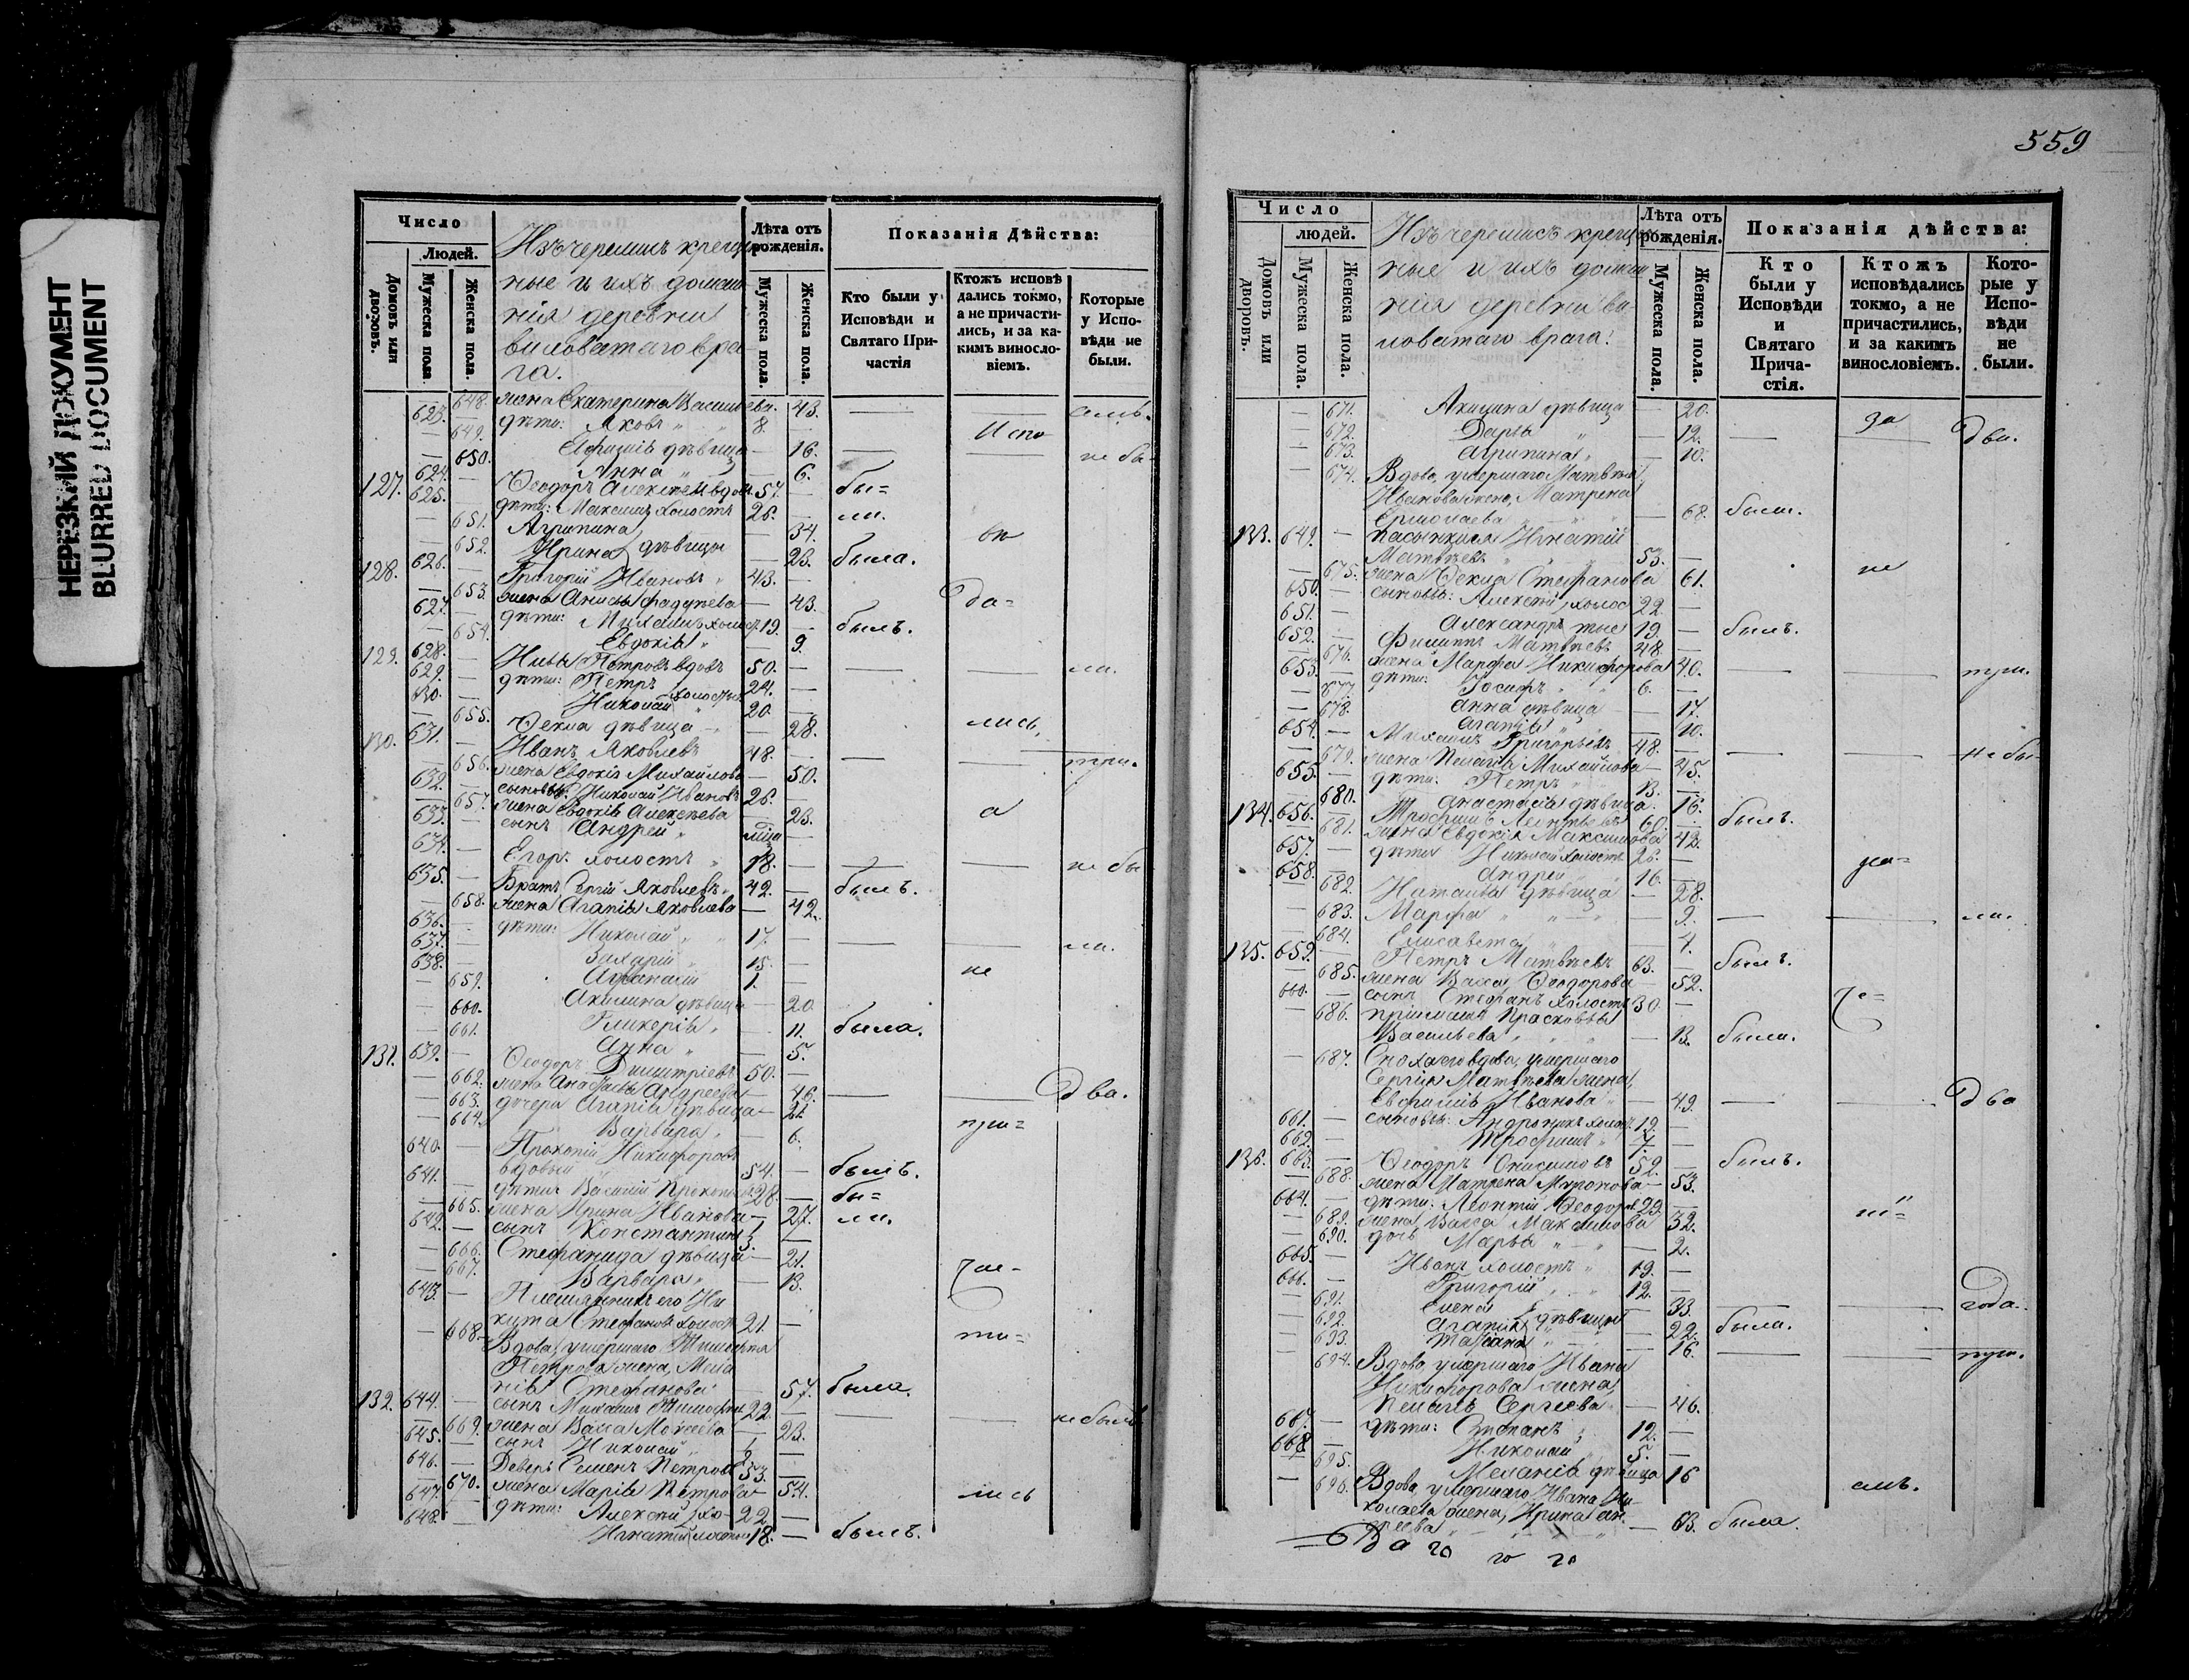 НЕРЕЗКИЙ ДОКУМЕНТ
BLURRED DOCUMENT
Число
Людей.
Домовъ или дворовъ.
Мужеска пола.
Женска пола.
Изъ черемисъ креще-
ные и ихъ домаш
нія деревни
виловатаго вра
га.
Лѣта отъ рожденія.
Мужеска пола.
Женска пола.
Показанія Дѣйства:
Кто были у Исповѣди и Святаго Причастія
Ктожъ исповѣдались токмо, а не причастились, и за какимъ винословіемъ.
Которые у Исповѣди не были.
648. жена Екатерина Васильева. — 43.
623. дѣти: Яковъ 8.
649. Евфимія дѣвица — 16. Испо
650. Анна — 6. не бы
127. 624. Ѳеодоръ Алексѣевъ вдовъ 57. — бы=
625. дѣти: Максимъ холостъ 26. — ли.
651. Агрипина — 34. вѣ
652. Ирина дѣвицы — 23. была.
128. 626. Григорій Ивановъ 43. —
653. жена Анисья Фадѣева — 43. да=
627. дѣти: Михаилъ холост. 19. — былъ.
654. Евдокія — 9.
129. 628. Илья Петровъ вдовъ 50. — ли.
629. дѣти: Петръ 24. —
630. Николай холосты 20. —
655. Ѳекла дѣвица — 28. лись,
130. 631. Иванъ Яковлевъ 48. —
656. жена Евдокія Михайлова — 50. три.
632. сыновья: Николай Ивановъ 26. —
657. жена Евдокія Алексѣева — 23. а
633. сынъ Андрей
634. Егоръ холостъ 18. — не бы
635. Братъ Сергій Яковлевъ 42. — былъ.
658. жена Агапія Яковлева — 42.
636. дѣти: Николай 17. — ли.
637. Захарій 15. —
638. Афанасій 1. — не
659. Акилина дѣвица — 20.
660. Гликерія — 11. была.
661. Анна — 5.
131. 639. Ѳеодоръ Димитріевъ 50. —
662. жена Анастасья Андреева — 46. два.
663. дочери Агапія дѣвица — 21.
664. Варвара — 6. при=
640. Прокопій Никифоровъ
вдовый 54. — былъ.
641. дѣти: Василій Прокопьевъ 28. — бы=
665. жена Ирина Иванова — 27. ли.
642. сынъ Константинъ 3. —
666. Стефанида дѣвица — 21.
667. Варвара — 13. час-
643. Племянникъ его Ни
кита Стефановъ холост. 21. —
668. Вдова, умершаго Тимофея ти=
Петрова жена, Мела
нія Стефанова — 57. была.
132. 644. сынъ Михаилъ Тимофеевъ 22. — не были
669. жена Васса Моисеева — 23.
645. сынъ Николай
646. Деверь Семенъ Петровъ 53. —
670. жена Марія Петрова — 54. лись
647. дѣти: Алексей хо- 22. —
648. Игнатій лостые 18. — былъ.
559
Число
людей.
Домовъ или дворовъ.
Мужеска пола.
Женска пола.
Изъ черемисъ креще
ные и ихъ домаш
нія деревни ви
ловатаго врага:
Лѣта отъ рожденія.
Мужеска пола.
Женска пола.
Показанія дѣйства:
Кто были у Исповѣди и Святаго Причастія.
Ктожъ исповѣдались токмо, а не причастились, и за какимъ винословіемъ.
Которые у Исповѣди не были.
671. Акилина дѣвица — 20. за
672. Дарья — 12. два.
673. Агрипина — 10.
674. Вдова, умершаго Матвѣя
Иванова жена, Матрена
Ермолаева — 68. были.
133. 649. пасынки ея Игнатій
Матвѣевъ 53. — не
675. жена Ѳекла Стефанова 61.
650. сыновья: Алексей, холос 22. —
651. Александръ тые 19. — былъ.
652. Филиппъ Матвѣевъ 48. —
676. жена Марфа Никифорова 40. три.
653. дѣти: Іосифъ 6. —
677. Анна дѣвица — 17.
678. Агапія — 10.
654. Михаилъ Григорьевъ 48. — не бы-
679. жена Пелагія Михайлова — 45.
655. дѣти: Петръ 13. —
680. Анастасія дѣвица — 16.
134. 656. Трофимъ Леонтьевъ 60. — былъ.
681. жена Евдокія Максимова 43.
657. дѣти Николай холостъ 26. —
658. Андрей 16. —
682. Наталья дѣвица — 28.
683. Марфа — 9. ли.
684. Елисавета — 4.
135. 659. Петръ Матвѣевъ 63. — былъ.
685. жена Васса Ѳеодорова — 52.
660. сынъ Стефанъ холостъ 30. —
686. пріемышъ Прасковья
Васильева — 13. были.
687. Сноха его вдова, умершаго
Сергія Матвѣева жена,
Евфимія Иванова — 49. два
661. сыновья: Андроникъ холост 19. —
662. Трофимъ 7. —
136. 663. Ѳеодоръ Онисимовъ 59. — былъ.
688. жена Матрена Миронова — 53.
664. дѣти: Леонтій Ѳеодоров. 29. —
689. жена Васса Максимова 32.
690. дочь Марья — 2.
665. Иванъ холостъ 19. —
666. Григорій 12. —
691. Елена — 33. года.
692. Агапія дѣвицы — 22. была.
693. Татіана — 16.
694. Вдова, умершаго Ивана три.
Никифорова жена,
Пелагія Сергеева — 46.
667. дѣти: Стефанъ 12. —
668. Николай 5. —
695. Меланія дѣвица 16
696. Вдова, умершаго Ивана Ни- емъ.
колаева жена, Ирина Ан
дреева — 63. была.